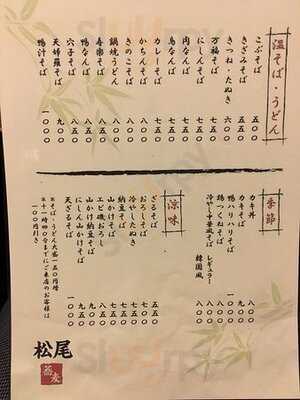 温そば・うどん
こぶそば 五五〇
きざみそば 五五〇
きつね・たぬき 六〇〇
万福そば 七五〇
にしんそば 七五〇
肉なんば 七五〇
鳥なんば 七五〇
カレーそば 七五〇
かちんそば 八〇〇
きのこそば 八〇〇
鍋焼うどん 八五〇
寿楽そば 八五〇
鴨なんば 八五〇
穴子そば 八五〇
天婦羅そば 九〇〇
鴨汁そば 一〇〇〇
季節
カキ丼 八〇〇
カキそば 九〇〇
鶏ハリハリそば 一〇〇〇
鶏つくねそば 八〇〇
冷やし中華風そば レギュラー 八〇〇
韓国風 八〇〇
涼味
ざるそば 五五〇
おろしそば 五五〇
冷やしたぬき 七〇〇
納豆そば 七五〇
山かけそば 七五〇
エビ磯おろし 九五〇
山かけ納豆そば 九〇〇
にしん山かけそば
天ざるそば 一〇〇〇
※そば・うどん大盛一五〇円増
※十一時四〇分までにご来店のお客様は
一〇〇円引き
松尾
蕎麦